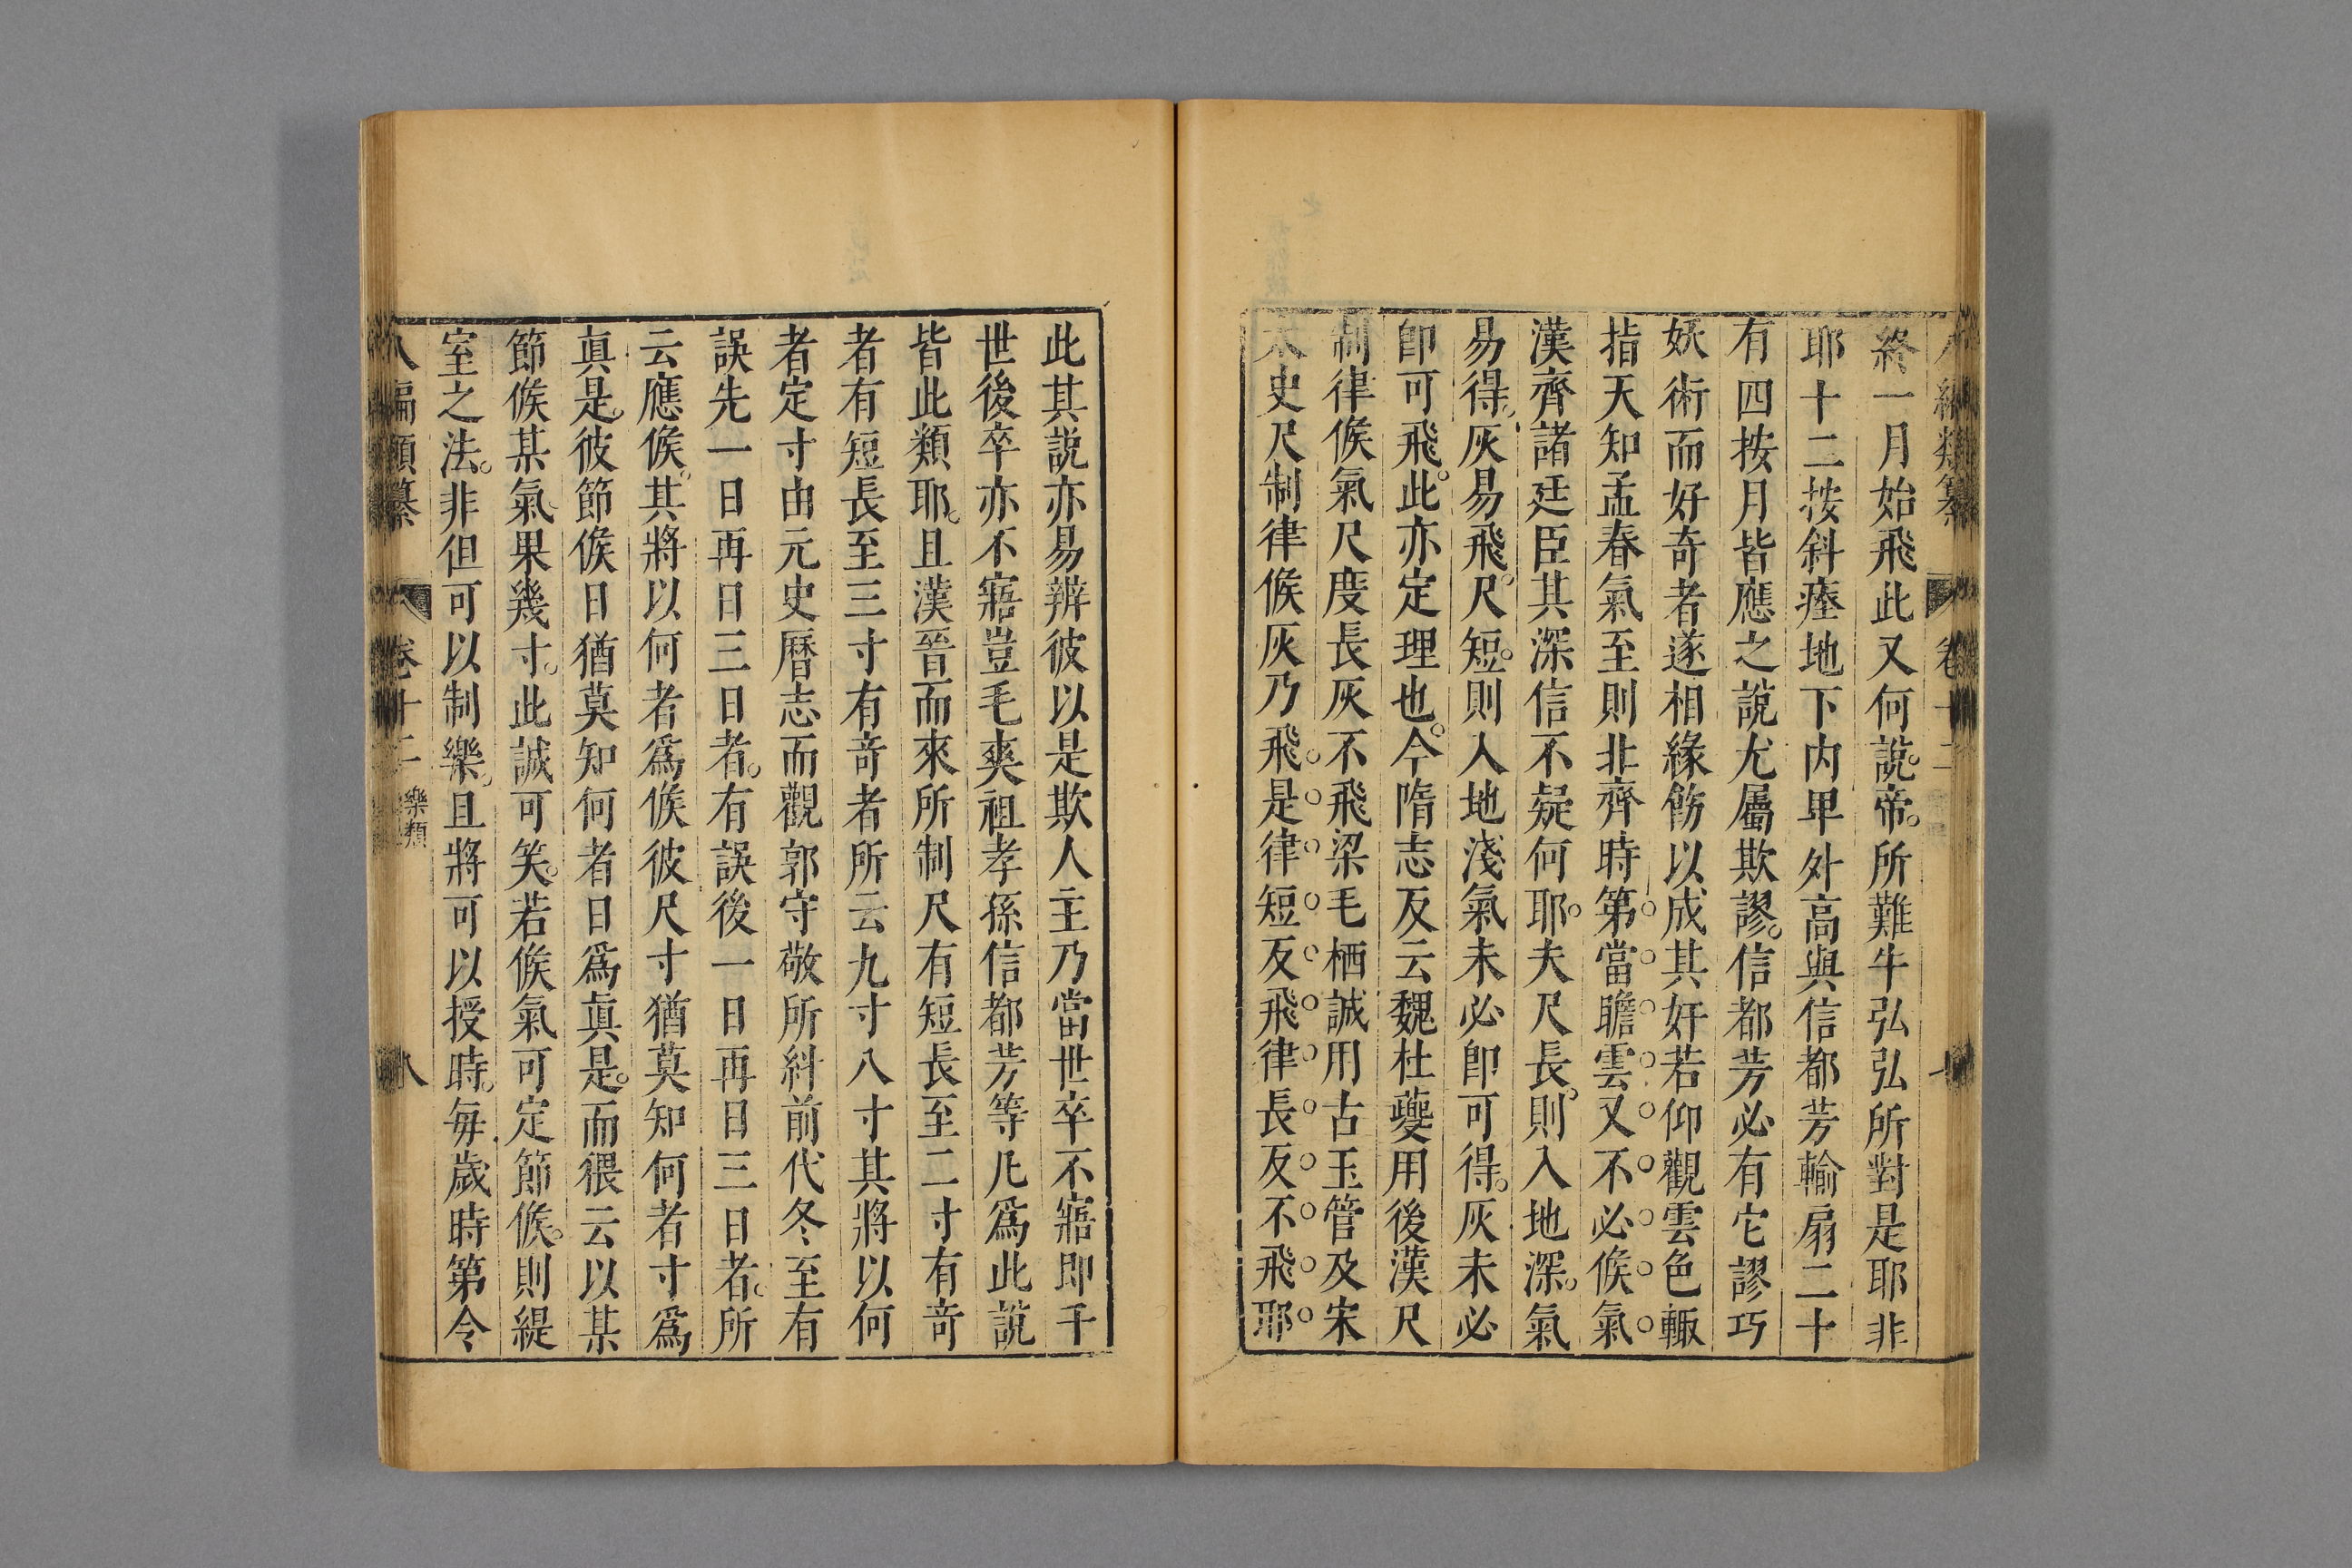 終一月始飛此又何說。帝。所難牛弘弘所對是耶非
耶十二按斜瘞地下内卑外高與信都芳輪扇二十
有四按月皆應之說尤屬欺謬。信都芳必有它謬巧
妖術而好奇者遂相緣飾以成其奸若仰觀雲色輙
指天知孟春氣至則北齊時第當瞻雲又不必候氣
漢齊諸廷臣其深信不疑何耶。夫尺長。則入地深。氣
易得。灰易飛。尺短。則入地淺氣未必即可得。灰未必
即可飛。此亦定理也。今隋志反云魏杜夔用後漢尺
制律候氣尺度長灰不飛梁毛栖誠用古玉管及宋
太史尺制律候灰乃飛是律短反飛律長反不飛耶
此其說亦易辨彼以是欺人主乃當世卒不寤即千
世後卒亦不寤豈毛爽祖孝孫信都芳等凡爲此說
皆此類耶。且漢晉而來所制尺有短長至二寸有竒
者有短長至三寸有竒者所云九寸八寸其將以何
者定寸由元史曆志而觀郭守敬所糾前代冬至有
誤先一日再日三日者。有誤後一日再日三日者。所
云應候。其將以何者爲候彼尺寸猶莫知何者寸爲
真是。彼節候日猶莫知何者日爲真是。而猥云以某
節候某氣果幾寸。此誠可笑。若候氣可定節候。則緹
室之法。非但可以制樂。且將可以授時。毎歲時第令
八編類纂 卷十二 樂類 八